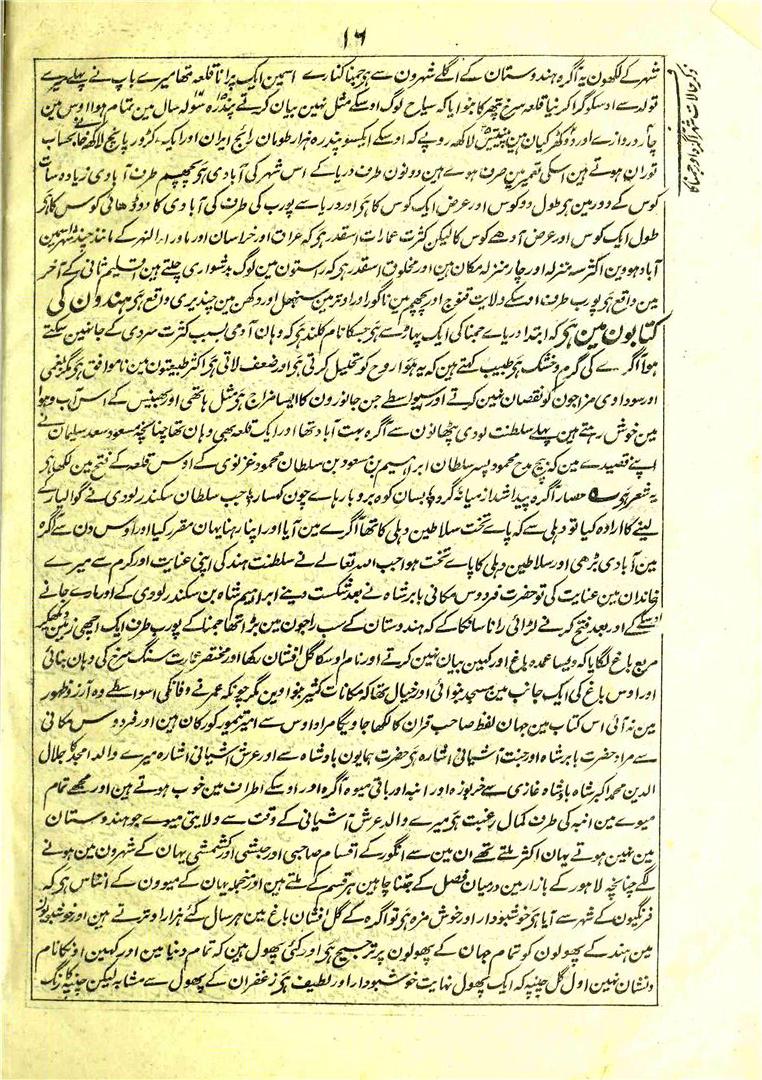 ۱۶
ذکر حالات شہر آگرہ اور جمنا کا
شہر کے لکھون یہ آگرہ ہندوستان کے اگلے شہرون سے ہی جمنا کنارے اسمین ایک پرانا قلعہ تھا میرے باپ نے پہلے میرے
تولد سے اوسکو گرا کر نیا قلعہ سرخ پتھر کا بنوایا کہ سیاح لوگ اوسکے مثل نہین بیان کرتے پندرہ سولہ سال مین تمام ہوا اوس مین
چار دروازے اور دو کھڑکیان ہین پینتیس لاکھ روپے کہ اوسکے ایکسو پندرہ ہزار طومان رائج ایران اور ایک کڑور پانچ لاکھ خانی بحساب
توران ہوتے ہین اسکی تعمیر مین صرف ہوے ہین دونون طرف دریا کے اس شہر کی آبادی ہی پچھم طرف آبادی زیادہ سات
کوس کے دور مین ہی طول دو کوس اور عرض ایک کوس کا ہی اور دریا سے پورب کی طرف کی آبادی کا دور ڈھائی کوس کا ہی
طول ایک کوس اور عرض آدھے کوس کا لیکن کثرت عمارات اسقدر ہی کہ عراق اور خراسان اور ماوراء النہر کے مانند چند شہر اسمین
آباد ہووین اکثر سہ منزلہ اور چار منزلہ مکان ہین اور مخلوق اسقدر ہی کہ رستون مین لوگ بدشواری چلتے ہین اقلیم ثانی کے آخر
مین واقع ہی پورب طرف اوسکے ولایت قنوج اور پچھم مین ناگور اور اوتر مین سنبھل اور دکھن مین چندیری واقع ہی ہندون کی
کتابون مین ہی کہ ابتدا دریاے جمنا کی ایک پہاڑ سے ہی جسکا نام کلند ہی کہ وہان آدمی بسبب کثرت سردی کے جا نہین سکتے
ہوا آگرے کی گرم و خشک ہی طبیب کہتے ہین کہ یہ ہوا روح کو تحلیل کرتی ہی اور ضعف لاتی ہی اکثر طبیعتون مین ناموافق ہی مگر بلغمی
اور سوداوی مزاجون کو نقصان نہین کرتے اور سیواسطے جن جانورون کا ایسا مزاج ہی مثل ہاتھی اور بھینس کے اس آب و ہوا
مین خوش رہتے ہین پہلے سلطنت لودی پٹھانون سے آگرہ بہت آباد تھا اور ایک قلعہ بھی وہان تھا چنانچہ مسعود سعد سلمان نے
اپنے قصیدے مین کہ بیچ مدح محمود پسر سلطان ابراہیم بن مسعود بن سلطان محمود غزنوی کے اوس قلعہ کے فتح مین لکھا ہی
یہ شعر ہی حصار آگرہ پیدا شد از میانہ گرد بسان کوہ برو بارہاے چون کہسار جب سلطان سکندر لودی نے گوالیار کے
لینے کا ارادہ کیا تو دہلی سے کہ پاے تخت سلاطین دہلی کا تھا آگرے مین آیا اور اپنا رہنا یہان مقرر کیا اور اوس دن سے آگرہ
مین آبادی بڑھی اور سلاطین دہلی کا پاے تخت ہوا جب اللہ تعالے نے سلطنت ہند کی اپنی عنایت اور کرم سے میرے
خاندان مین عنایت کی تو حضرت فردوس مکانی بابر شاہ نے بعد شکست دینے ابراہیم شاہ بن سکندر لودی کے اور مارے جانے
اوسکے اور بعد فتح کرنے لڑائی رانا سانگا کے کہ ہندوستان کے سب راجون مین بڑا تھا جمنا کے پورب طرف ایک اچھی زمین دیکھکر
مربع باغ لگایا کہ ویسا عمدہ باغ اور کہین بیان نہین کرتے اور نام اوسکا گل افشان رکھا اور مختصر عمارت سنگ سرخ کی وہان بنائی
اور اوس باغ کی ایک جانب مین مسجد بنوائی اور خیال تھا کہ مکانات کثیر بنواوین مگر چونکہ عمر نے وفا نکی اسواسطے وہ آرزو ظہور
مین نہ آئی اس کتاب مین جہان لفظ صاحب قران کا لکھا جاویگا مراد اوس سے امیر تیمور گورگان ہین اور فردوس مکانی
سے مراد حضرت بابر شاہ اور جنت آشیانی اشارہ ہی حضرت ہمایون بادشاہ سے اور عرش آشیانی اشارہ میرے والد امجد کا جلال
الدین محمد اکبر شاہ بادشاہ غازی سے خربوزہ اور انبہ اور باقی میوہ آگرہ اور اوسکے اطراف مین خوب ہوتے ہین اور مجھے تمام
میوے مین انبہ کی طرف کمال رغبت ہی میرے والد عرش آشیانی کے وقت سے ولایتی میوے جو ہندوستان
مین نہین ہوتے یہان اکثر ملتے تھے ان مین سے انگور کے اقسام صاحبی اور حبشی اور کشمشی یہان کے شہرون مین ہونے
لگے چنانچہ لاہور کے بازار مین درمیان فصل کے جتنا چاہین ہر قسم کے ملتے ہین اور منجملہ یہان کے میوون کے انناس ہی کہ
فرنگیون کے شہر سے آیا ہی خوشبودار اور خوش مزہ ہی تو آگرہ کے گل افشان باغ مین ہر سال کئے ہزار اوترتے ہین اور خوشبودار
مین ہند کے پھولون کو تمام جہان کے پھولون پر ترجیح ہی اور کئی پھول ہین کہ تمام دنیا مین اور کہین اونکا نام
و نشان نہین اول گل چنپہ کہ ایک پھول نہایت خوشبودار اور لطیف ہی زعفران کے پھول سے مشابہ لیکن چنپہ کا رنگ